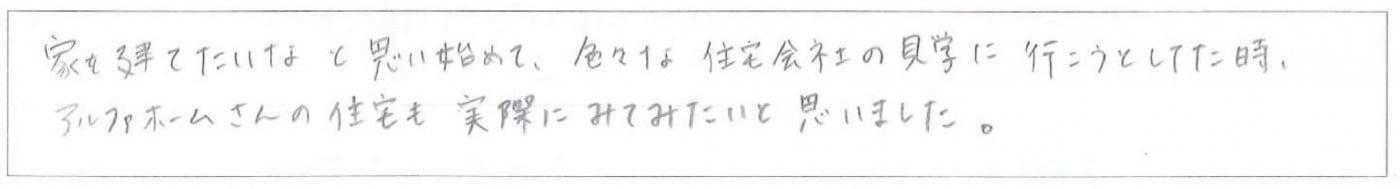 家を建てたいなと思い始めて、色々な住宅会社の見学に行こうとしてた時、
アルファホームさんの住宅も実際にみてみたいと思いました。